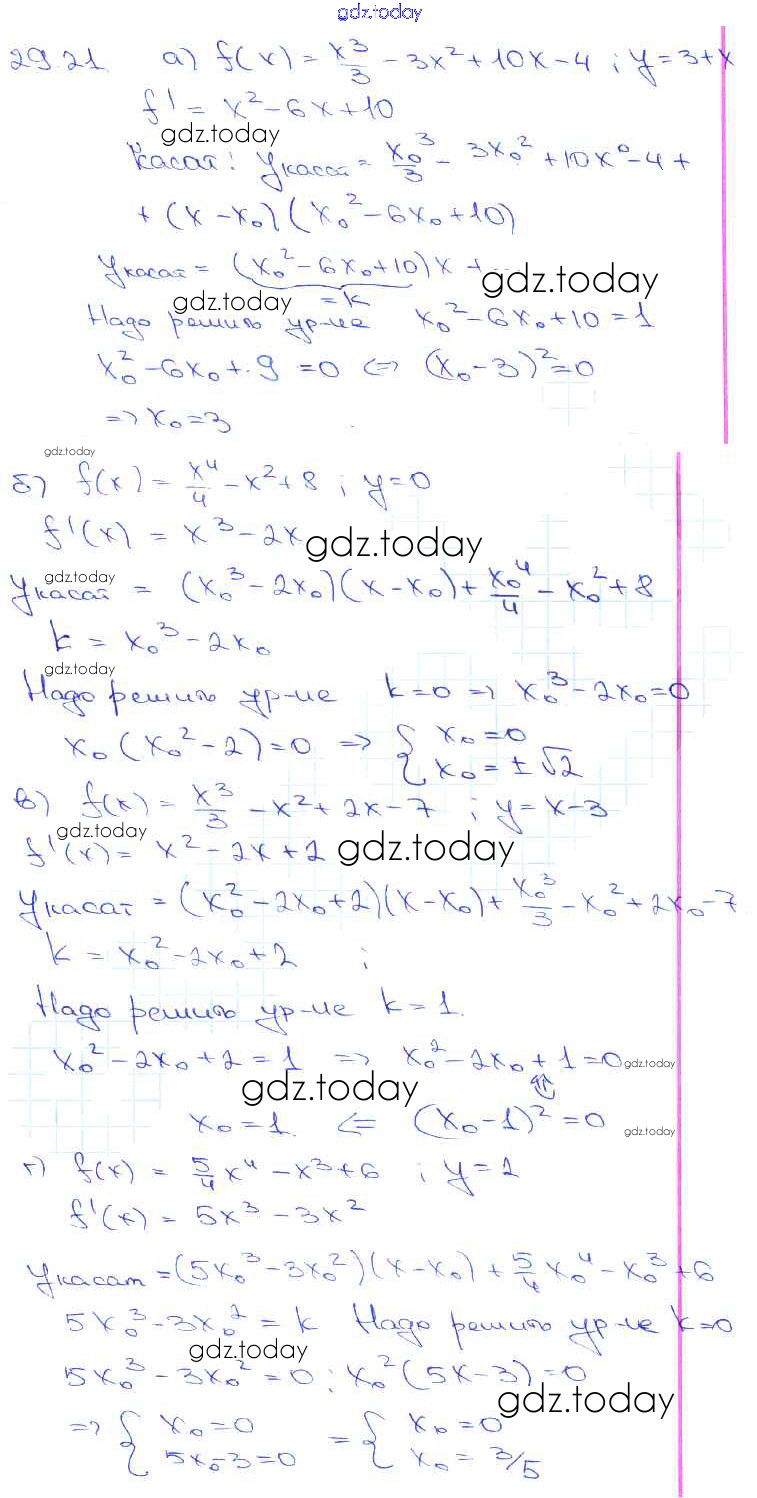 gdz.today
29.21. а) f(x) = x³/3 - 3x² + 10x - 4 ; y = 3+x
f' = x² - 6x + 10
gdz.today
Касат: yкасат = x₀³/3 - 3x₀² + 10x⁰ - 4 +
+ (x - x₀)(x₀² - 6x₀ + 10)
yкасат = (x₀² - 6x₀ + 10)x + ...
gdz.today
gdz.today = k
Надо решить ур-ие x₀² - 6x₀ + 10 = 1
x₀² - 6x₀ + 9 = 0 <=> (x₀ - 3)² = 0
=> x₀ = 3
gdz.today
б) f(x) = x⁴/4 - x² + 8 ; y = 0
f'(x) = x³ - 2x
gdz.today
gdz.today
yкасат = (x₀³ - 2x₀)(x - x₀) + x₀⁴/4 - x₀² + 8
k = x₀³ - 2x₀
gdz.today
Надо решить ур-ие k = 0 => x₀³ - 2x₀ = 0
x₀(x₀² - 2) = 0 => { x₀ = 0
x₀ = ± √2
в) f(x) = x³/3 - x² + 2x - 7 ; y = x - 3
gdz.today
f'(x) = x² - 2x + 2 gdz.today
yкасат = (x₀² - 2x₀ + 2)(x - x₀) + x₀³/3 - x₀² + 2x₀ - 7
k = x₀² - 2x₀ + 2 ;
Надо решить ур-ие k = 1.
x₀² - 2x₀ + 2 = 1 => x₀² - 2x₀ + 1 = 0 gdz.today
gdz.today
x₀ = 1. <= (x₀ - 1)² = 0 gdz.today
г) f(x) = 5/4 x⁴ - x³ + 6 ; y = 2
f'(x) = 5x³ - 3x²
yкасат = (5x₀³ - 3x₀²)(x - x₀) + 5/4 x₀⁴ - x₀³ + 6
5x₀³ - 3x₀² = k Надо решить ур-ие k = 0
gdz.today
5x₀³ - 3x₀² = 0 ; x₀²(5x - 3) = 0
gdz.today
=> { x₀ = 0 = { x₀ = 0
5x₀ - 3 = 0 x₀ = 3/5